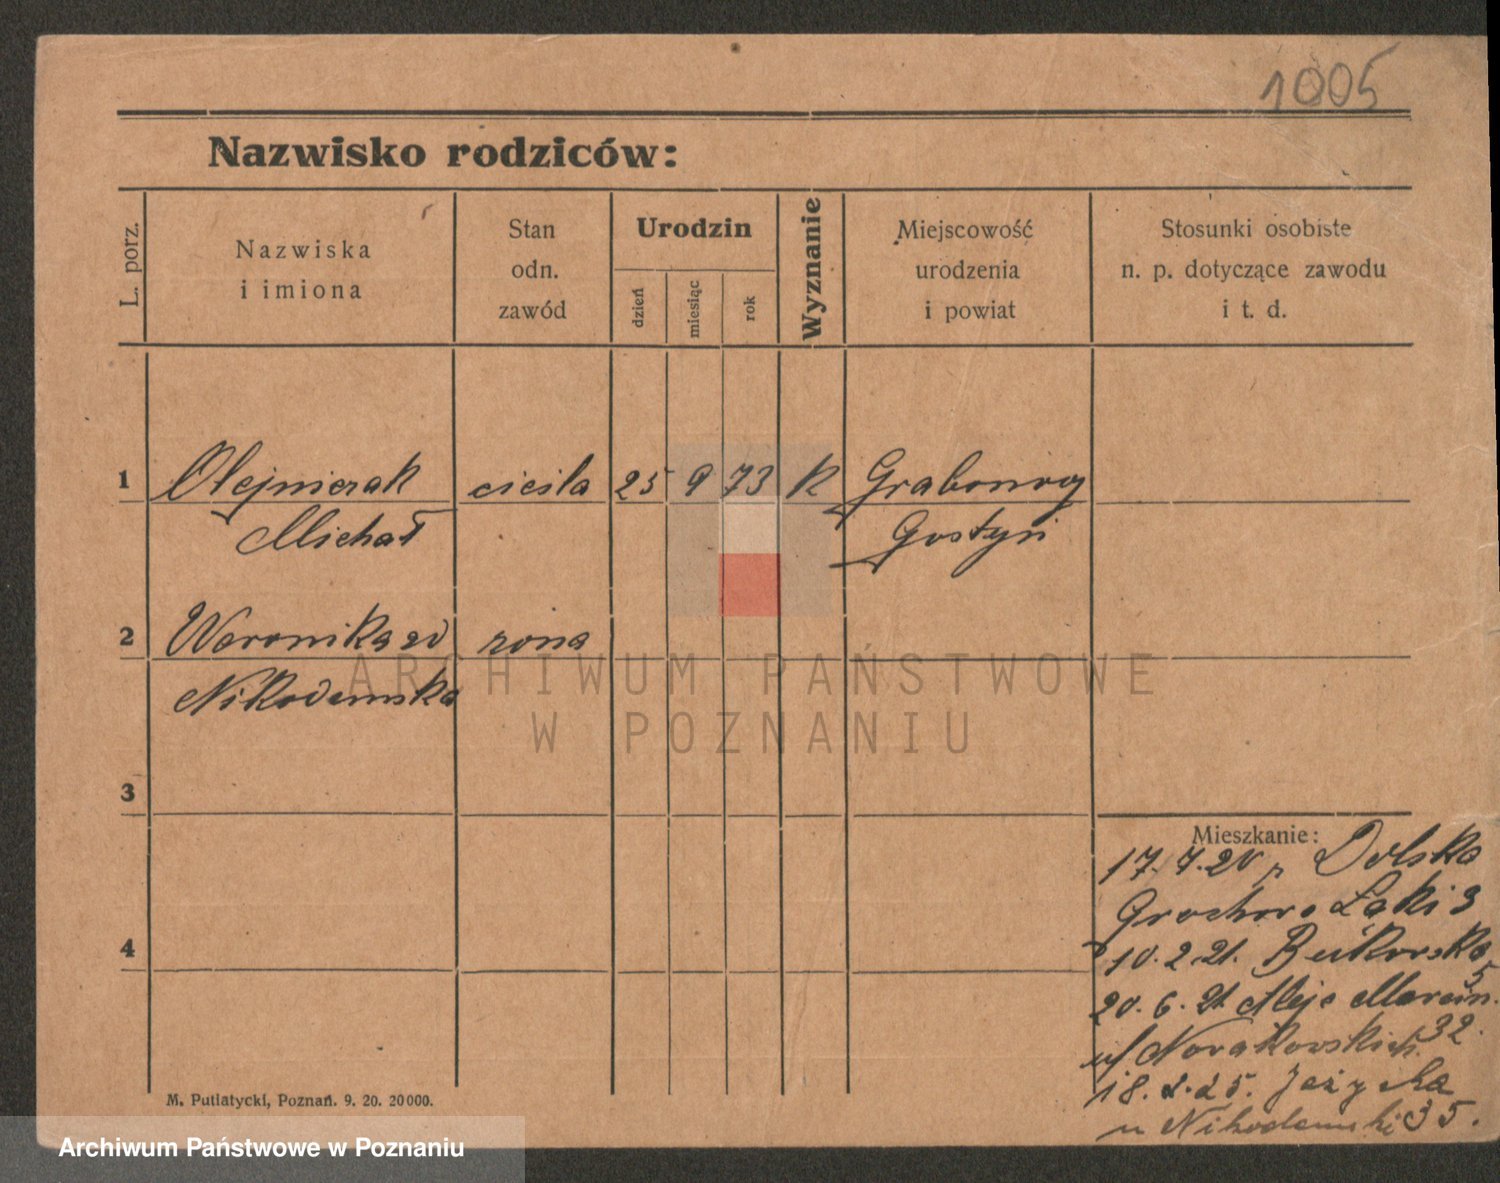 1005
Nazwisko rodziców:
L. porz.
Nazwiska
i imiona
Stan
odn.
zawód
Urodzin
dzień
miesiąc
rok
Wyznanie
Miejscowość
urodzenia
i powiat
Stosunki osobiste
n. p. dotyczące zawodu
i t. d.
1 Olejniczak cieśla 25 9 73 K Grabonog
Michał Gostyń
2 Weronika zd żona
Nikodemska
3
Mieszkanie:
17.7.20 Dolsko
Grochowe Łąki 3
4
10.2.21. Bukowska
5
20.6.21 Aleje Marcin.
32.
u/ Nowakowskich.
18.2.25. Jeżycka
u Nikodemski 35.
M. Putiatycki, Poznań. 9. 20. 20000.
ARCHIWUM PAŃSTWOWE
W POZNANIU
Archiwum Państwowe w Poznaniu